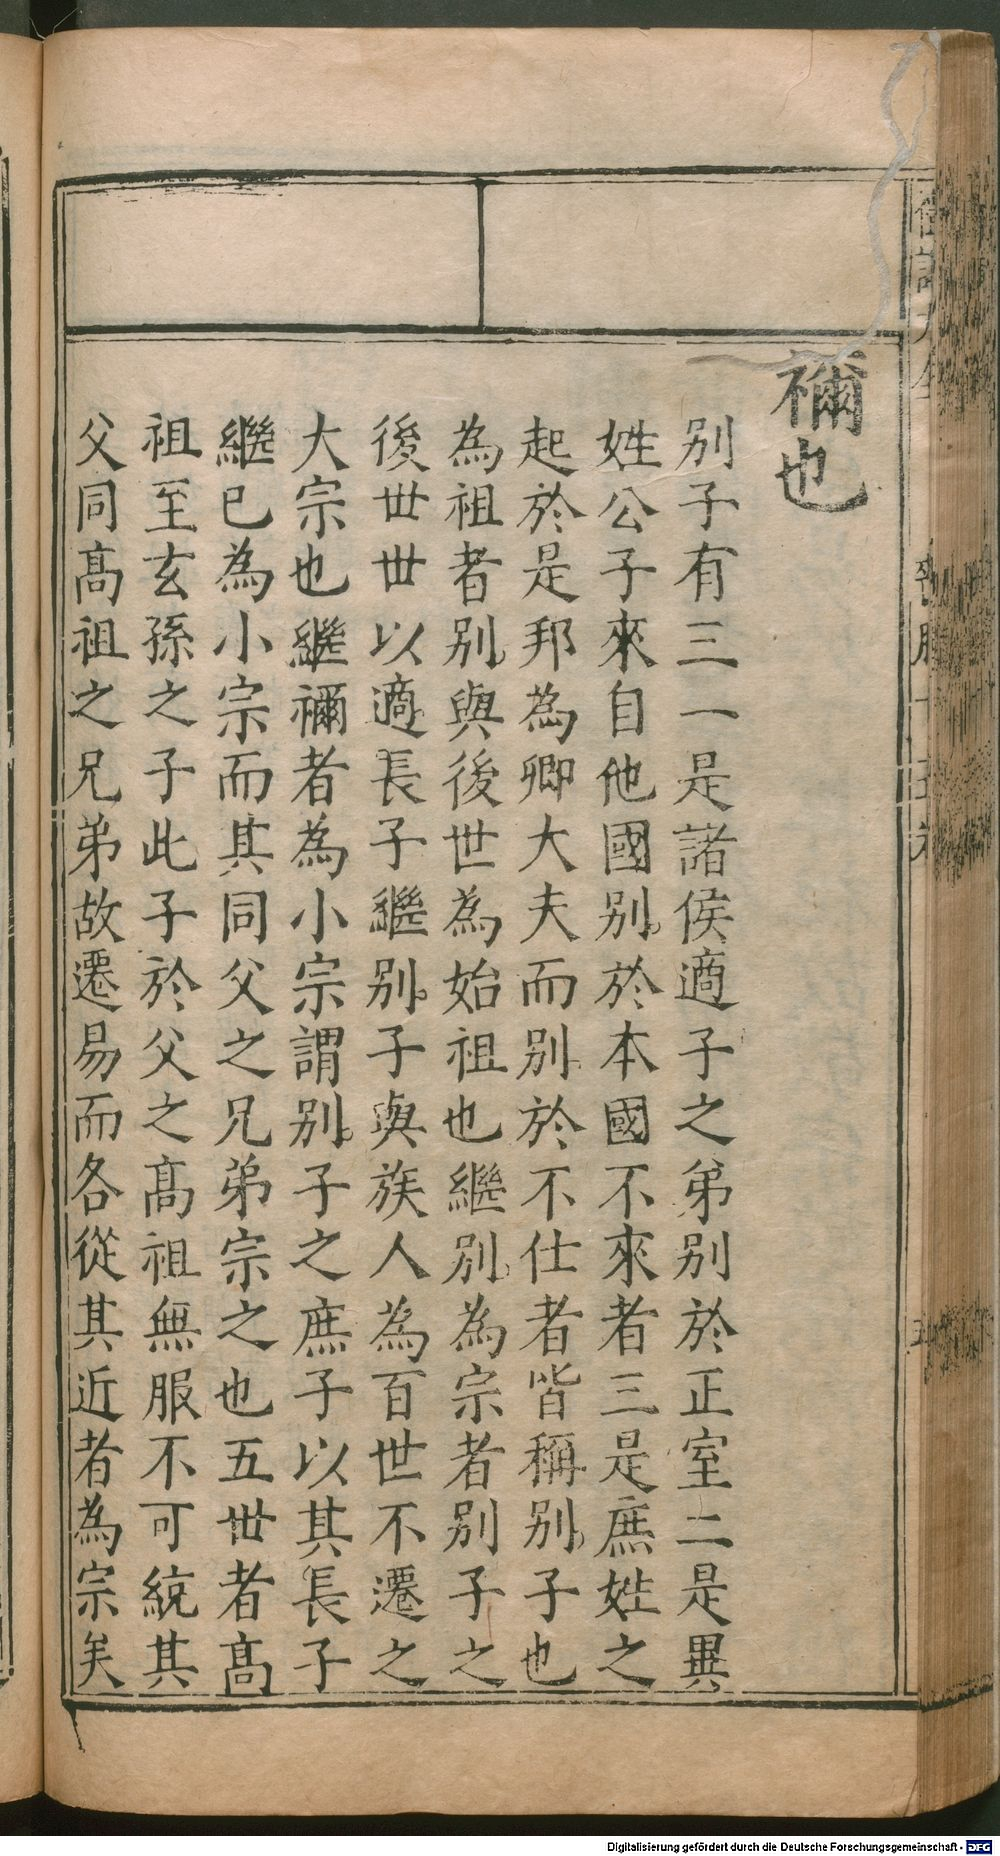 禰也
別子有三一是諸侯適子之弟別於正室二是異
姓公子來自他國別於本國不來者三是庶姓之
起於是邦為卿大夫而別於不仕者皆稱別子也
為祖者別與後世為始祖也繼別為宗者別子之
後世世以適長子繼別子與族人為百世不遷之
大宗也繼禰者為小宗謂別子之庶子以其長子
繼已為小宗而其同父之兄弟宗之也五世者高
祖至玄孫之子此子於父之高祖無服不可統其
父同高祖之兄弟故遷易而各從其近者為宗矣
Digitalisierung gefördert durch die Deutsche Forschungsgemeinschaft - DFG